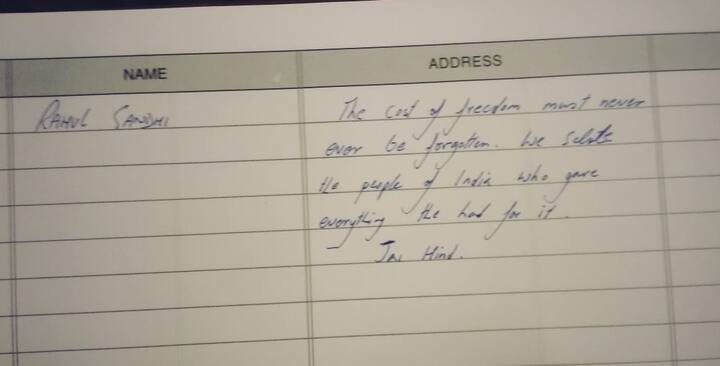 NAME ADDRESS
RAHUL GANDHI The cost of freedom must never
ever be forgotten. We salute
the people of India who gave
everything the had for it.
Jai Hind.